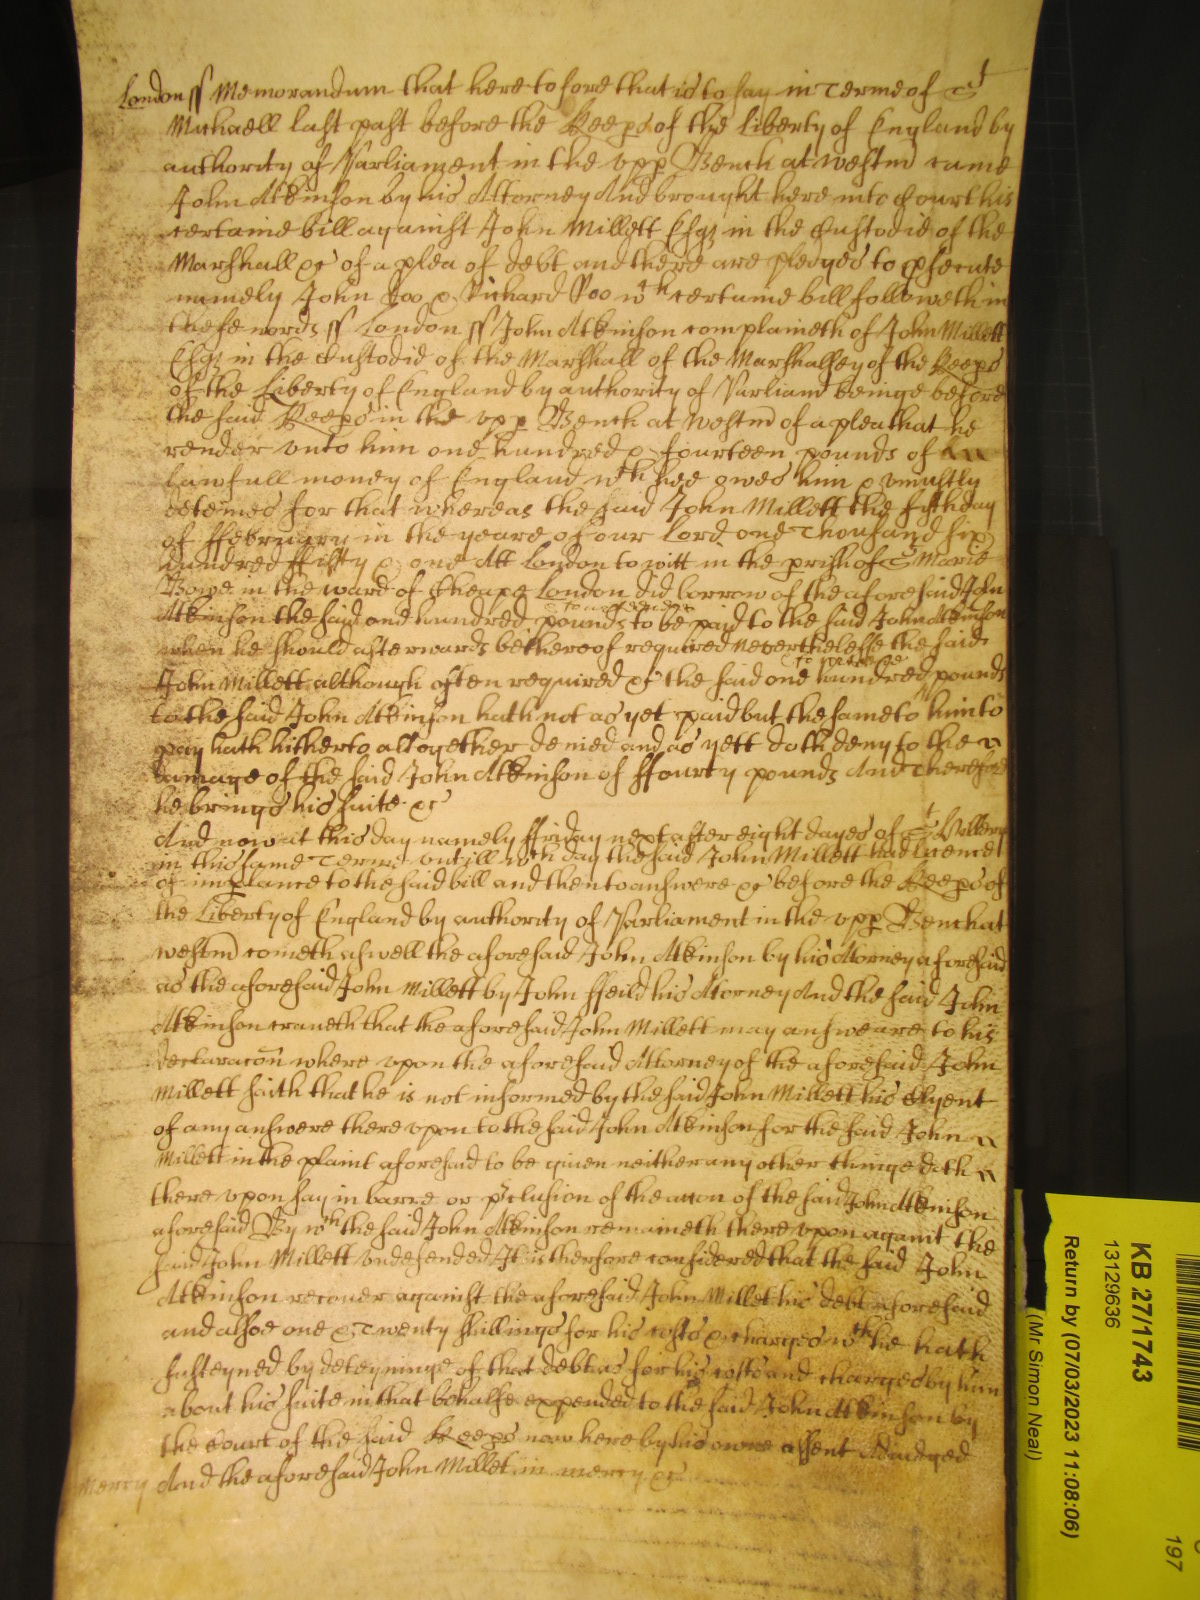 London ss Memorandum that heretofore that is to say in Terme of St
Michaell last past before the Keeps of the Liberty of England by
authority of Parliament in the upp Bench at westm came
John Atkinson by his Attorney And brought here into Court his
certaine bill against John Millett Esqz in the Custodie of the
Marshall &c of a plea of debt and there are pledges to psecute
namely John Doo & Richard Roo wch certaine bill followeth in
these words ss London ss John Atkinson complaineth of John Millett
Esqz in the Custodie of the Marshall of the Marshalsey of the Keeps
of the Liberty of England by authority of Parliamt beinge before
the said Keeps in the upp Bench at westm of a plea that he
render unto him one hundred & fourteen pounds of
lawfull money of England wch hee owes him & uniustly
deteines for that whereas the said John Millett the fifth day
of ffebruary in the yeare of our Lord one Thousand six
hundred ffifty & one Att London to witt in the prish of St Marie
Bowe in the ward of Cheape London did borrow of the aforesaid John
Atkinson the said one hundred pounds to be paid to the said John Atkinson
when he should afterwards be thereof required Neverthelesse the said
John Millett although often required &c the said one hundred pounds
to the said John Atkinson hath not as yet paid but the same to him to
pay hath hitherto altogether denied and as yett doth deny to the
damage of the said John Atkinson of ffourty pounds And Therefore
he brings his suite &c
And now at this day namely ffriday next after eight dayes of St Hillary
in this same Terme untill wch day the said John Millett had licence
of implance to the said bill and then to answere &c before the Keeps of
the Liberty of England by authority of Parliament in the upp Bench at
westm cometh aswell the aforesaid John Atkinson by his Attorney aforesaid
as the aforesaid John Millett by John ffeild his Attorney And the said John
Atkinson craveth that the aforesaid John Millett may answeare to his
declaracon where upon the aforesaid Attorney of the aforesaid John
Millett saith that he is not informed by the said John Millett his Clyent
of any answere there upon to the said John Atkinson for the said John
Millett in the plaint aforesaid to be given neither any other thinge doth
there upon say in barre or pclusion of the accon of the said John Atkinson
aforesaid By wch the said John Atkinson remaineth there upon against the
said John Millett undefended It is therfore considered that the said John
Atkinson recouer against the aforesaid John Millet his debt aforesaid
and alsoe one & Twenty shillings for his costs & charges wch he hath
susteyned by deteyninge of that debt as for his costs and charges by him
about his suite in that behalfe expended to the said John Atkinson by
the Court of the said Keeps now here by his owne assent Adiudged
mercy And the aforesaid John Millet in mercy &c
KB 27/1743
13129636
Return by (07/03/2023 11:08:06)
(Mr Simon Neal)
197